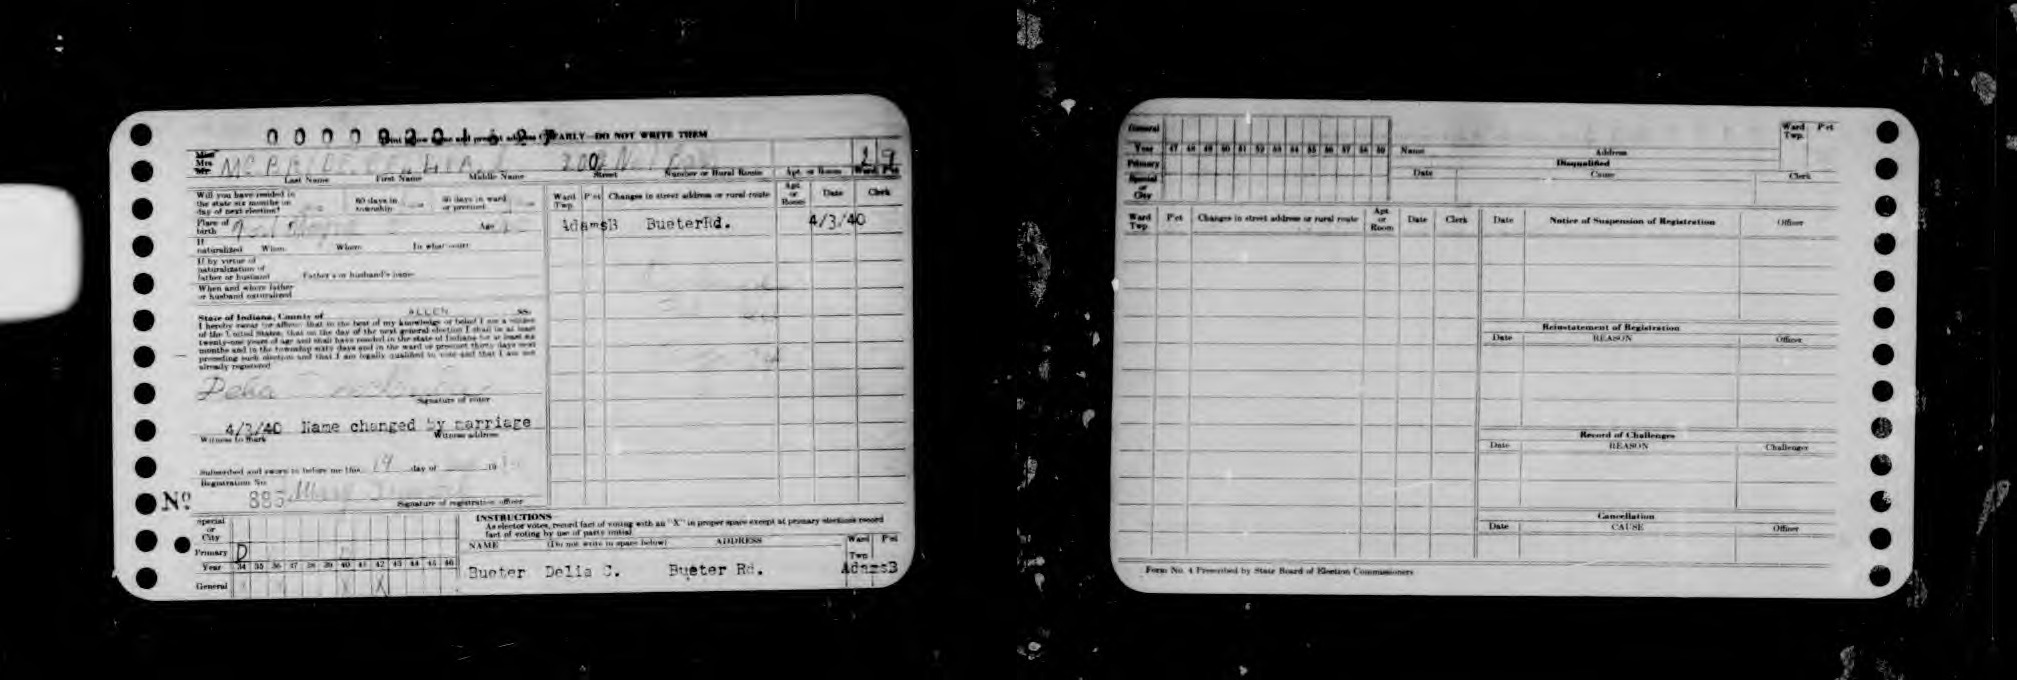 EARLY—DO NOT WRITE THEM
Mrs.
Mr.
Last Name First Name Middle Name Street Number or Rural Route Apt. or Room Ward Pct
Will you have resided in
the state six months on
day of next election?
60 days in
township
30 days in ward
or precinct
Place of
birth
Age
If
naturalized When Where In what court
If by virtue of
naturalization of
father or husband Father's or husband's name
When and where father
or husband naturalized
State of Indiana, County of ALLEN ss:
I hereby swear (or affirm) that to the best of my knowledge or belief I am a citizen
of the United States; that on the day of the next general election I shall be at least
twenty-one years of age and shall have resided in the state of Indiana for at least six
months and in the township sixty days and in the ward or precinct thirty days next
preceding such election and that I am legally qualified to vote and that I am not
already registered
Delia
Signature of voter
4/3/40 Name changed by marriage
Witness to mark Witness address
Subscribed and sworn to before me this 14 day of 19
Registration No.
No. 885
Signature of registration officer
Ward
Twp. Pct Changes in street address or rural route Apt.
or
Room Date Clerk
AdamsB BueterRd. 4/3/40
Special
or
City
Primary D
Year 34 35 36 37 38 39 40 41 42 43 44 45 46
General X X
INSTRUCTIONS
As elector votes, record fact of voting with an "X" in proper space except at primary elections record
fact of voting by use of party initial
NAME (Do not write in space below) ADDRESS Ward
Twp Pct
Bueter Delia C. Bueter Rd. AdamsB
General
Year 47 48 49 50 51 52 53 54 55 56 57 58 59
Primary
Special
or
City
Name Address
Ward
Twp. Pct
Disqualified
Date Cause Clerk
Ward
Twp. Pct Changes in street address or rural route Apt
or
Room Date Clerk
Date Notice of Suspension of Registration Officer
Reinstatement of Registration
Date REASON Officer
Record of Challenges
Date REASON Challenger
Cancellation
Date CAUSE Officer
Form No. 4 Prescribed by State Board of Election Commissioners